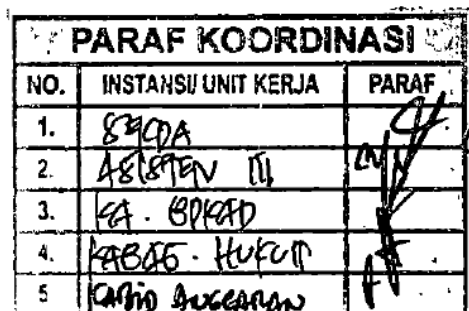 PARAF KOORDINASI
NO. INSTANSI/ UNIT KERJA PARAF
1. SEKDA
2. ASISTEN III
3. KA. BPKAD
4. KABAG. HUKUM
5 KABID ANGGARAN